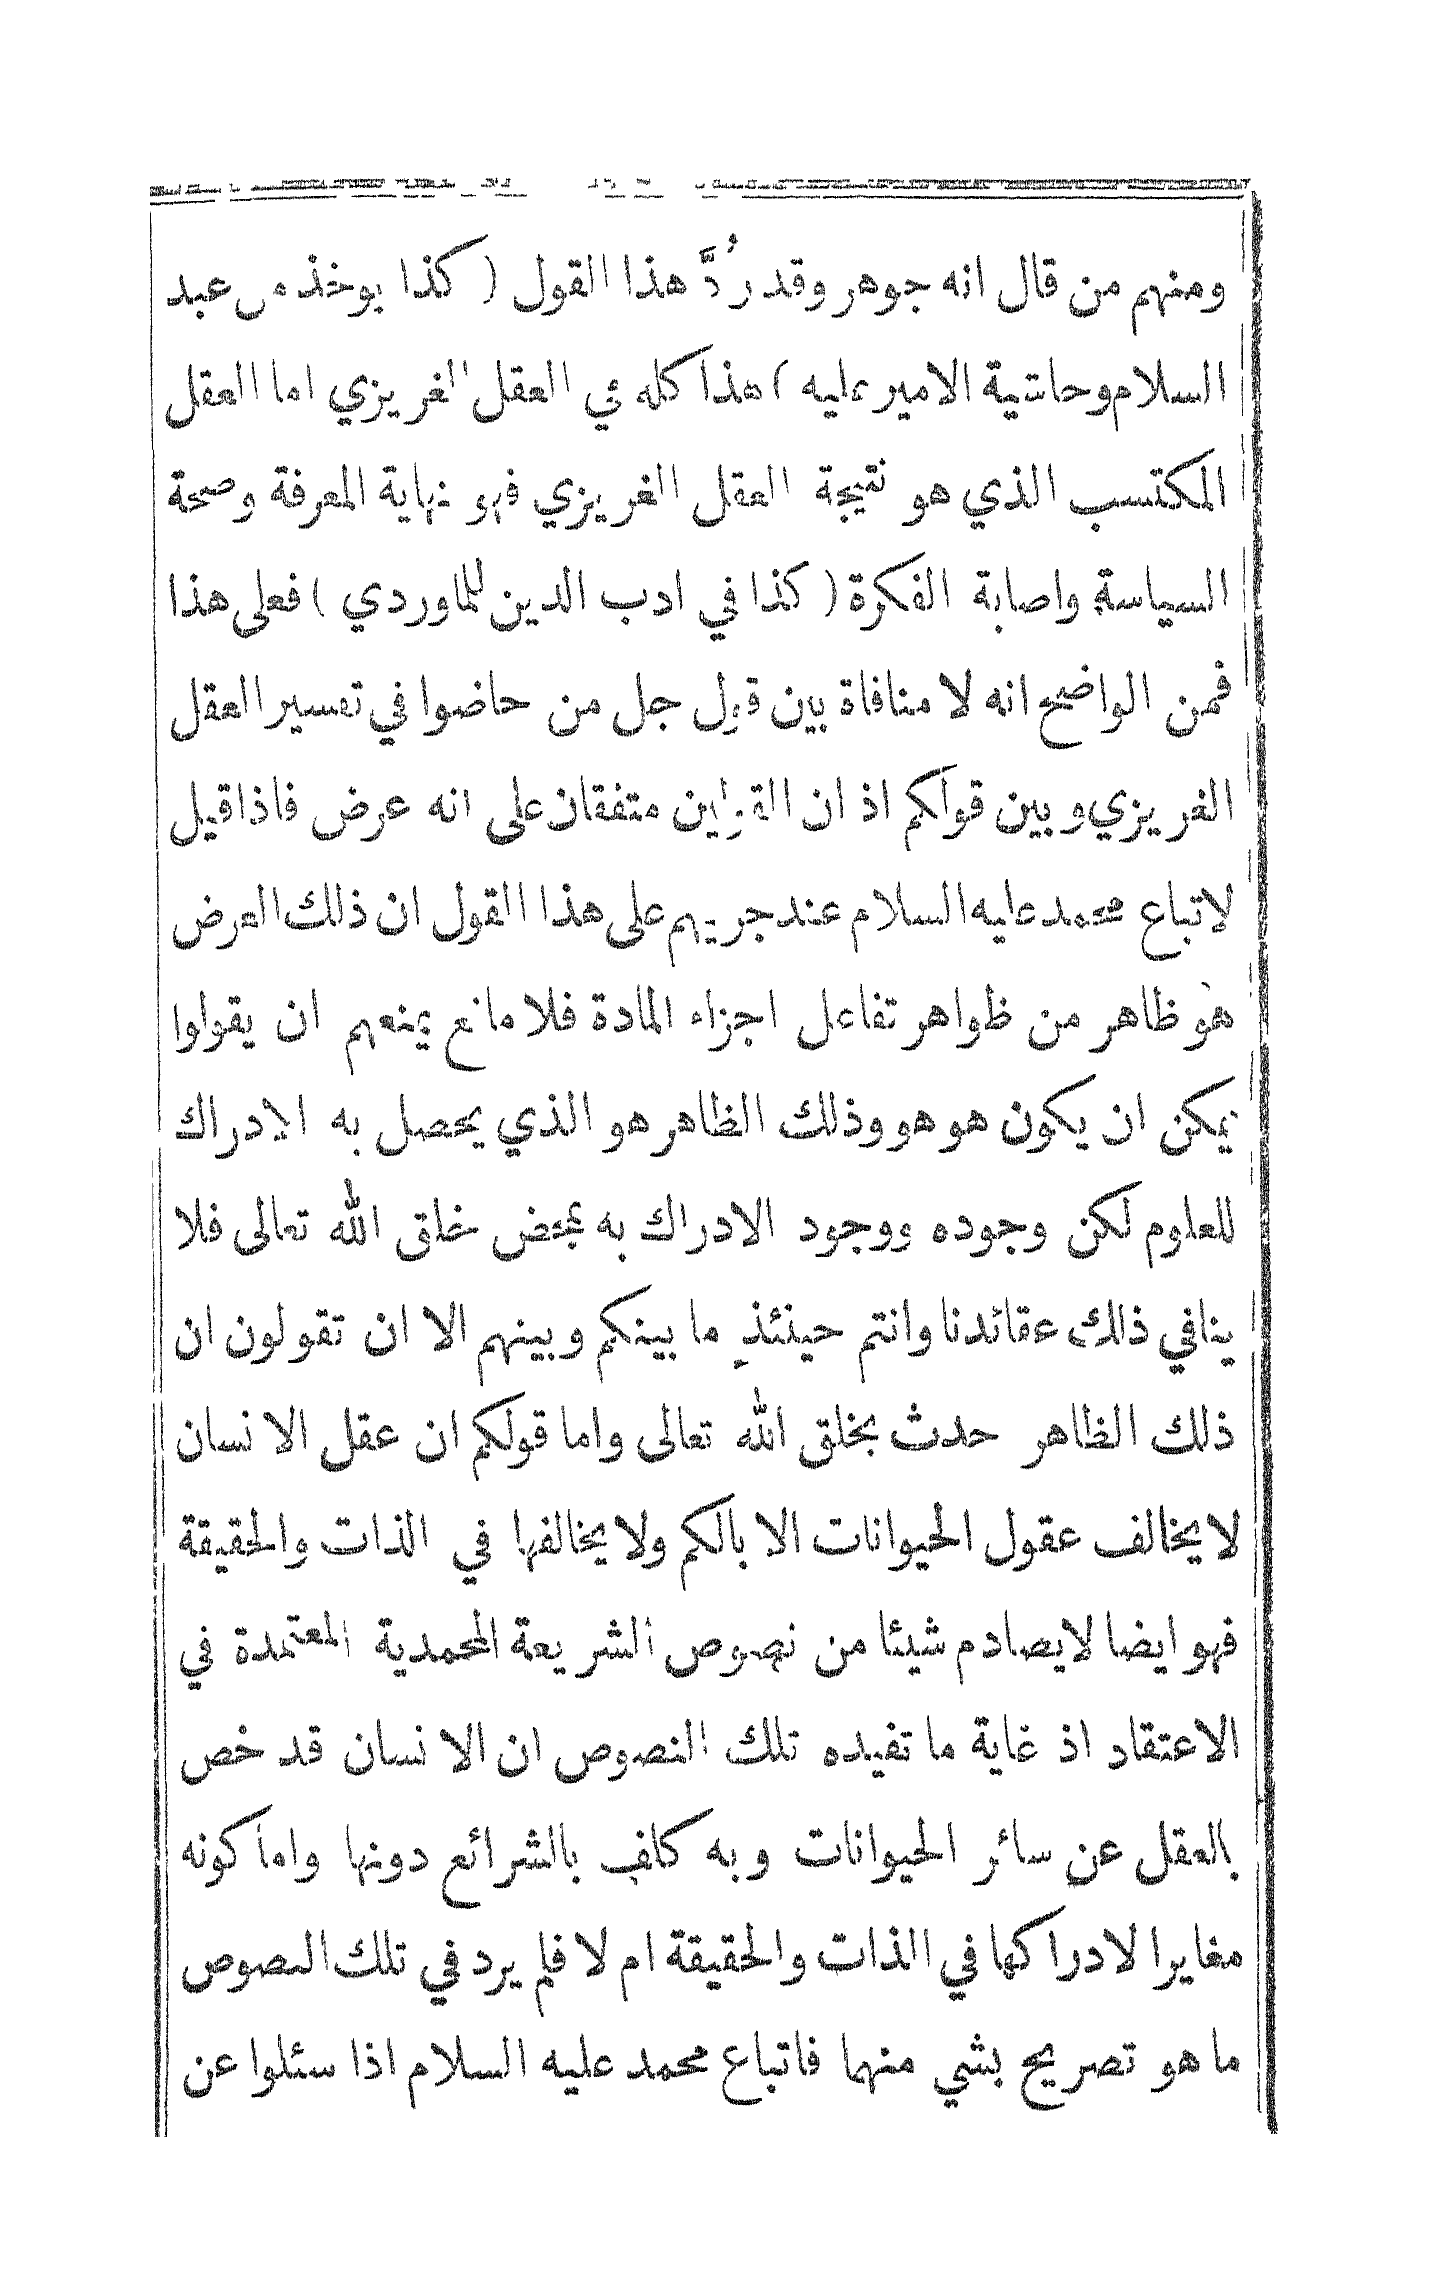 ومنهم من قال انه جوهر وقد رُدَّ هذا القول ( كذا يوخذ من عبد
السلام وحاشية الامير عليه ) هذا كله في العقل الغريزي اما العقل
المكتسب الذي هو نتيجة العقل الغريزي فهو نهاية المعرفة وصحة
السياسة واصابة الفكرة ( كذا في ادب الدين للماوردي ) فعلى هذا
فمن الواضح انه لا منافاة بين قول جل من خاضوا في تفسير العقل
الغريزي وبين قولكم اذ ان القولين متفقان على انه عرض فاذا قيل
لاتباع محمد عليه السلام عند جريهم على هذا القول ان ذلك العرض
هو ظاهر من ظواهر تفاعل اجزاء المادة فلا مانع يمنعهم ان يقولوا
يمكن ان يكون هو هو وذلك الظاهر هو الذي يحصل به الادراك
للعلوم لكن وجوده ووجود الادراك به بمحض خلق الله تعالى فلا
ينافي ذلك عقائدنا وانتم حينئذٍ ما بينكم وبينهم الا ان تقولون ان
ذلك الظاهر حدث بخلق الله تعالى واما قولكم ان عقل الانسان
لا يخالف عقول الحيوانات الا بالكم ولا يخالفها في الذات والحقيقة
فهو ايضا لا يصادم شيئا من نصوص الشريعة المحمدية المعتمدة في
الاعتقاد اذ غاية ما تفيده تلك النصوص ان الانسان قد خص
بالعقل عن سائر الحيوانات وبه كلف بالشرائع دونها واما كونه
مغايرا لادراكها في الذات والحقيقة ام لا فلم يرد في تلك النصوص
ما هو تصريح بشي منهما فاتباع محمد عليه السلام اذا سئلوا عن